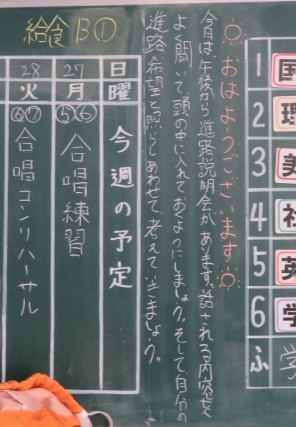 国
理
美
社
英
学
学
1
2
3
4
5
6
ふ
おはようございます
今日は、午後から進路説明会があります。話される内容を
よく聞いて、頭の中に入れておくようにしましょう。そして、自分の
進路希望と照らしあわせて、考えていきましょう。
今週の予定
日 曜
27 月 ⑤⑥ 合唱練習
28 火 ⑥⑦ 合唱コンリハーサル
給食 B①